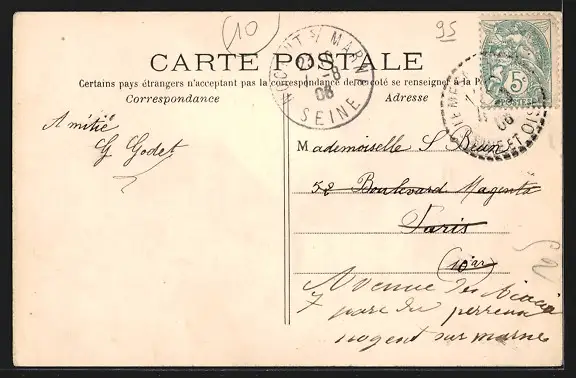 (10)
95
CARTE POSTALE
Certains pays étrangers n'acceptant pas la correspondance de ce coté se renseigner à la Po
Correspondance
Adresse
NOGENT S/ MARNE
08
SEINE
5c
POSTES
ET OISE
Amitié
G Godet
Mademoiselle S Brun
52 Boulevard Magenta
Paris
(10 ar)
Avenue des
7 parc du perreux
nogent sur marne